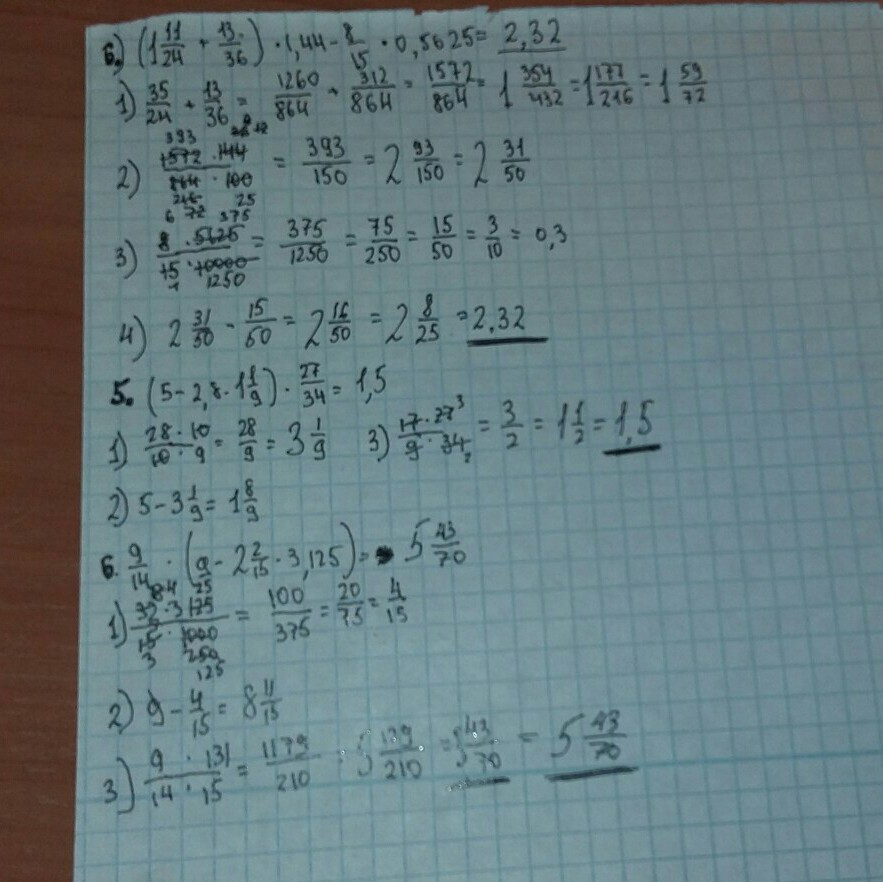 6.) (1 11/24 + 13/36) · 1,44 - 8/15 · 0,5625 = 2,32
1) 35/24 + 13/36 = 1260/864 + 312/864 = 1572/864 = 1 354/432 = 1 177/216 = 1 59/72
2) 1572 · 144 / 864 · 100 = 393/150 = 2 93/150 = 2 31/50
3) 8 · 5625 / 15 · 10000 = 375/1250 = 75/250 = 15/50 = 3/10 = 0,3
4) 2 31/50 - 15/50 = 2 16/50 = 2 8/25 = 2,32
5. (5 - 2,8 · 1 1/9) · 27/34 = 1,5
1) 28 · 10 / 10 · 9 = 28/9 = 3 1/9 3) 17 · 27 / 9 · 34 = 3/2 = 1 1/2 = 1,5
2) 5 - 3 1/9 = 1 8/9
6. 9/14 · (9 - 2 2/15 · 3,125) = 5 43/70
1) 32 · 3125 / 15 · 1000 = 100/375 = 20/75 = 4/15
2) 9 - 4/15 = 8 11/15
3) 9 · 131 / 14 · 15 = 1179/210 = 5 129/210 = 5 43/70 = 5 43/70